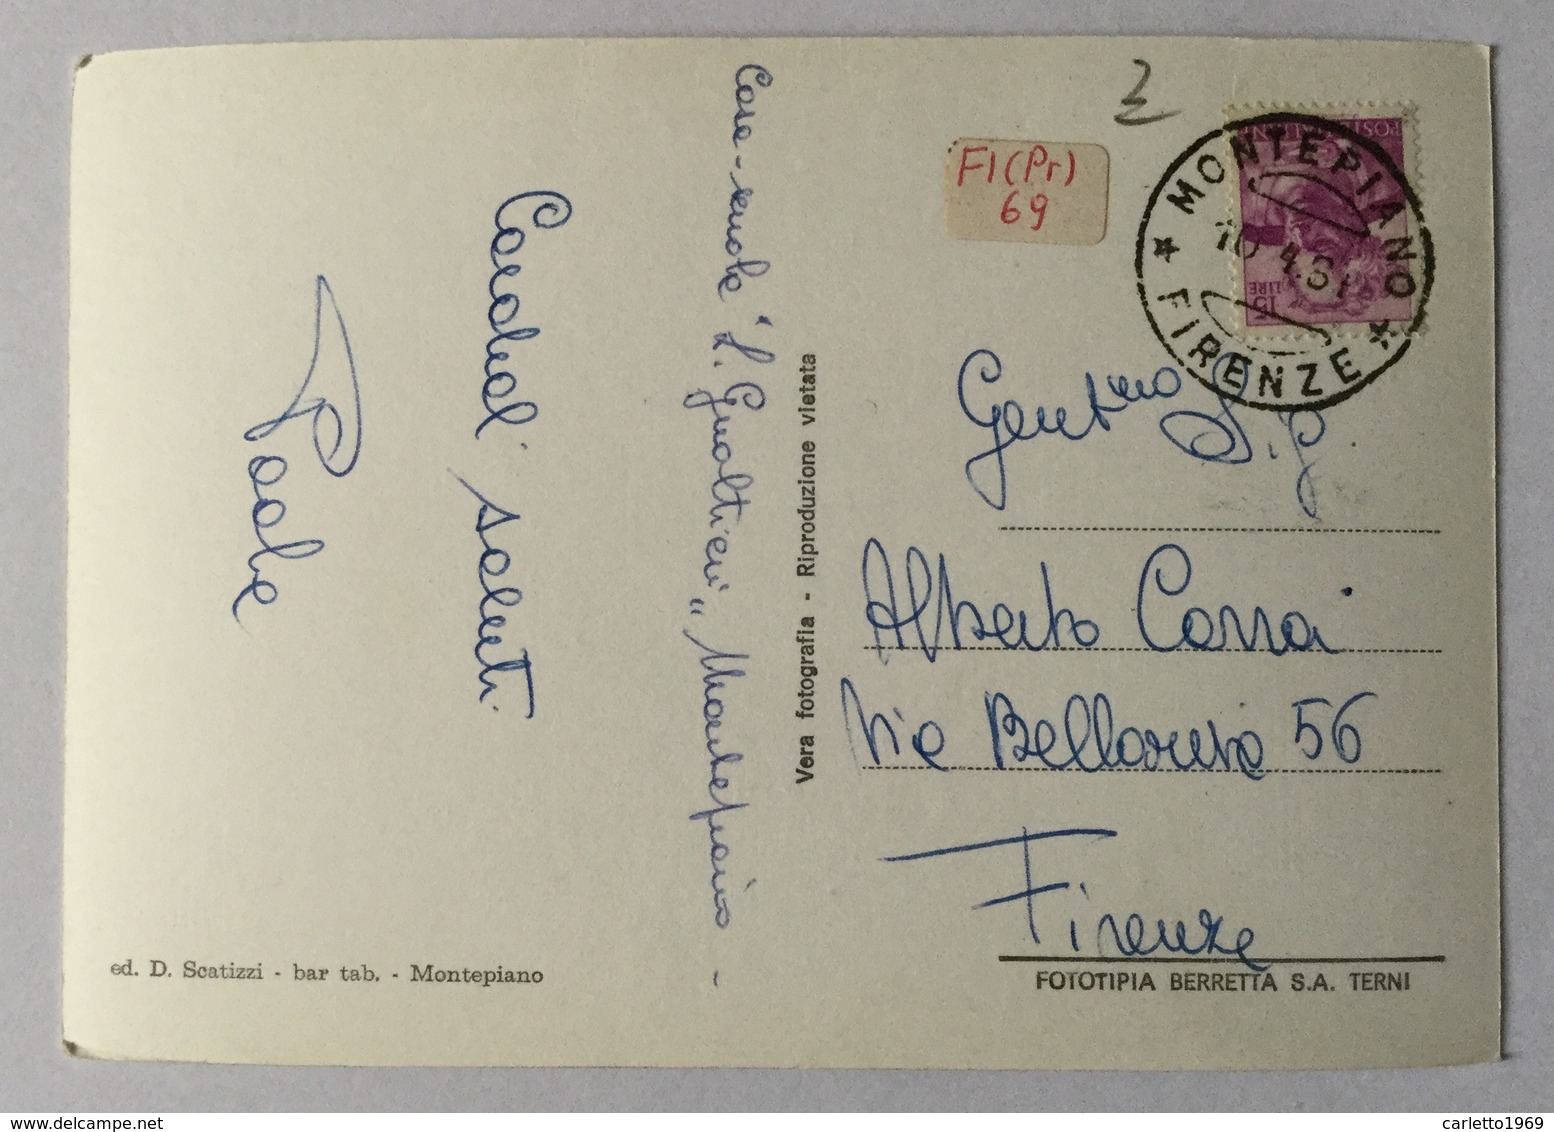 2
FI (Pr)
69
POSTE ITALIANE
LIRE 15
MONTEPIANO
10.4.61
* FIRENZE *
Casa-scuola "S. Gualtieri" Montepiano -
Cordiali saluti
Vera fotografia - Riproduzione vietata
Gent.mo Sig.
Alberto Corrai
Via Bellariva 56
Firenze
ed. D. Scatizzi - bar tab. - Montepiano
FOTOTIPIA BERRETTA S.A. TERNI
carletto1969